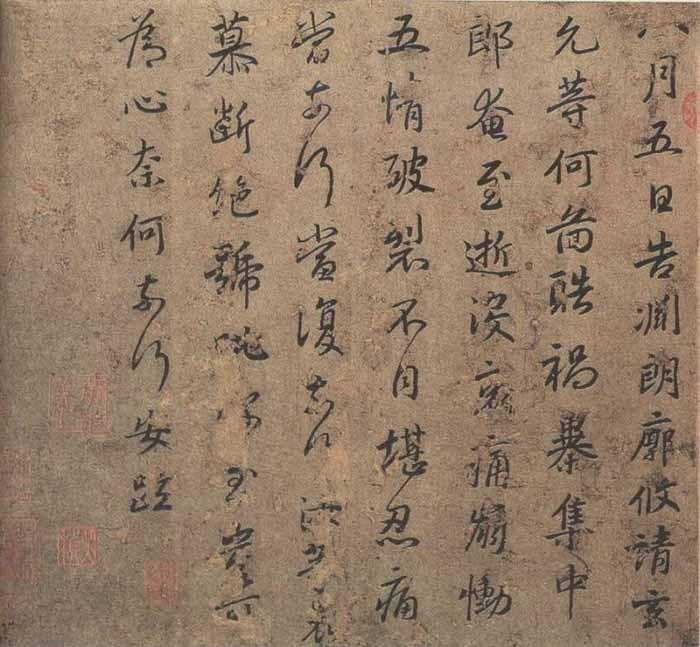 八月五日告淵朗廓攸靖玄
允等何圖酷禍暴集中
郎奄至逝沒哀痛崩慟
五情破裂不自堪忍痛
當奈何當復奈何汝等哀
慕斷絕號咷深至豈可
爲心奈何奈何安疏